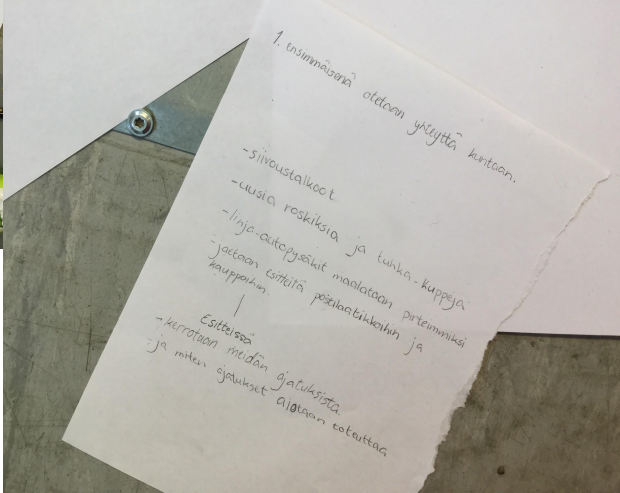 1. ensimmäisenä otetaan yhteyttä kuntaan.
-siivoustalkoot.
-uusia roskiksia ja tuhka-kuppeja
-linja-autopysäkit maalataan pirteimmiksi
-jaetaan esitteitä postilaatikkoihin ja
kauppoihin.
Esitteissä
-kerrotaan meidän ajatuksista
-ja miten ajatukset aiotaan toteuttaa